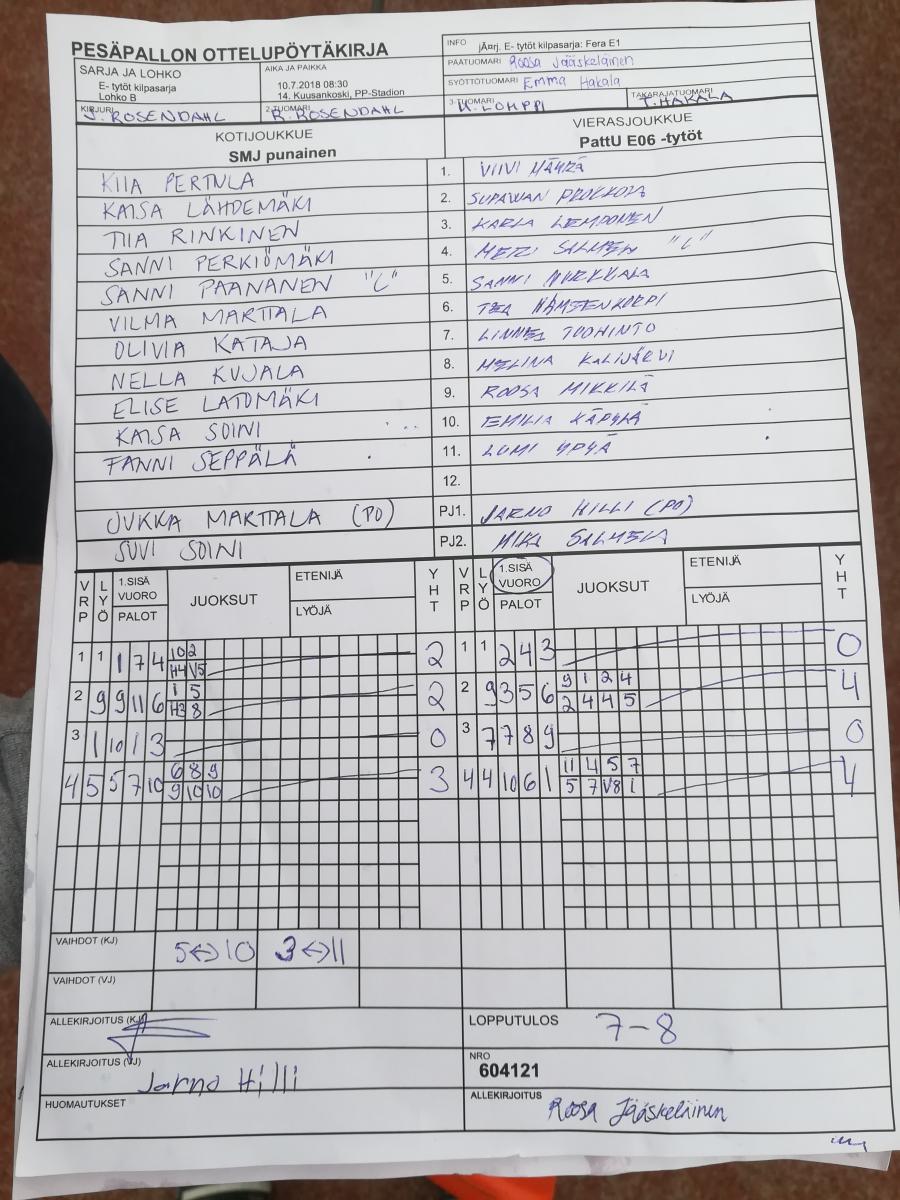 PESÄPALLON OTTELUPÖYTÄKIRJA
INFO jÃ¤rj. E- tytöt kilpasarja: Fera E1
PÄÄTUOMARI Roosa Jääskeläinen
SYÖTTÖTUOMARI Emma Hakala
SARJA JA LOHKO
E- tytöt kilpasarja
Lohko B
AIKA JA PAIKKA
10.7.2018 08:30
14. Kuusankoski, PP-Stadion
KIRJURI J. ROSENDAHL
2-TUOMARI R. ROSENDAHL
3-TUOMARI K. LOHPPI
TAKARAJATUOMARI T. HAKALA
KOTIJOUKKUE
SMJ punainen
VIERASJOUKKUE
PattU E06 -tytöt
KIIA PERTULA 1. VIIVI
KAISA LÄHDEMÄKI 2.
TIIA RINKINEN 3. KARLA LEMPONEN
SANNI PERKIÖMÄKI 4. "L"
SANNI PAANANEN "L" 5. SANNI
VILMA MARTTALA 6.
OLIVIA KATAJA 7. TUOHINTO
NELLA KUJALA 8. MELINA KALIJÄRVI
ELISE LATOMÄKI 9. ROOSA MIKKILÄ
KAISA SOINI 10. EMILIA KÄPYLÄ
FANNI SEPPÄLÄ 11. LUMI YPYÄ
12.
JUKKA MARTTALA (PO) PJ1. JARNO HILLI (PO)
SUVI SOINI PJ2. MIKA SALMELA
VRP LYÖ 1.SISÄ VUORO PALOT JUOKSUT ETENIJÄ LYÖJÄ YHT VRP LYÖ 1.SISÄ VUORO PALOT JUOKSUT ETENIJÄ LYÖJÄ YHT
1 1 1 7 4 10 2 2 1 1 2 4 3 0
H4 V5
2 9 9 11 6 1 5 2 2 9 3 5 6 9 1 2 4 4
H3 8 2 4 4 5
3 1 10 1 3 0 3 7 7 8 9 0
4 5 5 7 10 6 8 9 3 4 4 10 6 1 11 4 5 7 4
9 10 10 5 7 V8 1
VAIHDOT (KJ) 5<->10 3<->11
VAIHDOT (VJ)
ALLEKIRJOITUS (KJ)
LOPPUTULOS 7-8
ALLEKIRJOITUS (VJ) Jarno Hilli
NRO
604121
HUOMAUTUKSET
ALLEKIRJOITUS Roosa Jääskeläinen